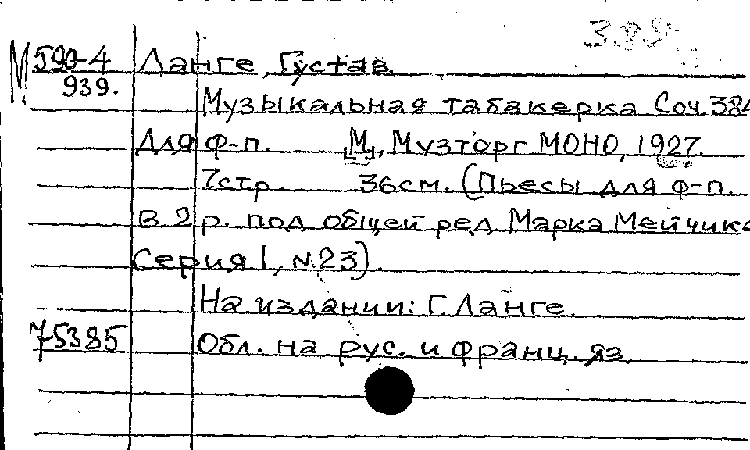 М 590-4 Ланге, Густав.
939.
Музыкальная табакерка Соч. 384
для ф-п. [М], Музторг МОНО, 1927.
7стр. 36см. (Пьесы для ф-п.
в 2 р. под общей ред Марка Мейчика
Серия I, N.23).
На издании: Г. Ланге.
75385 Обл. на рус. и франц. яз.